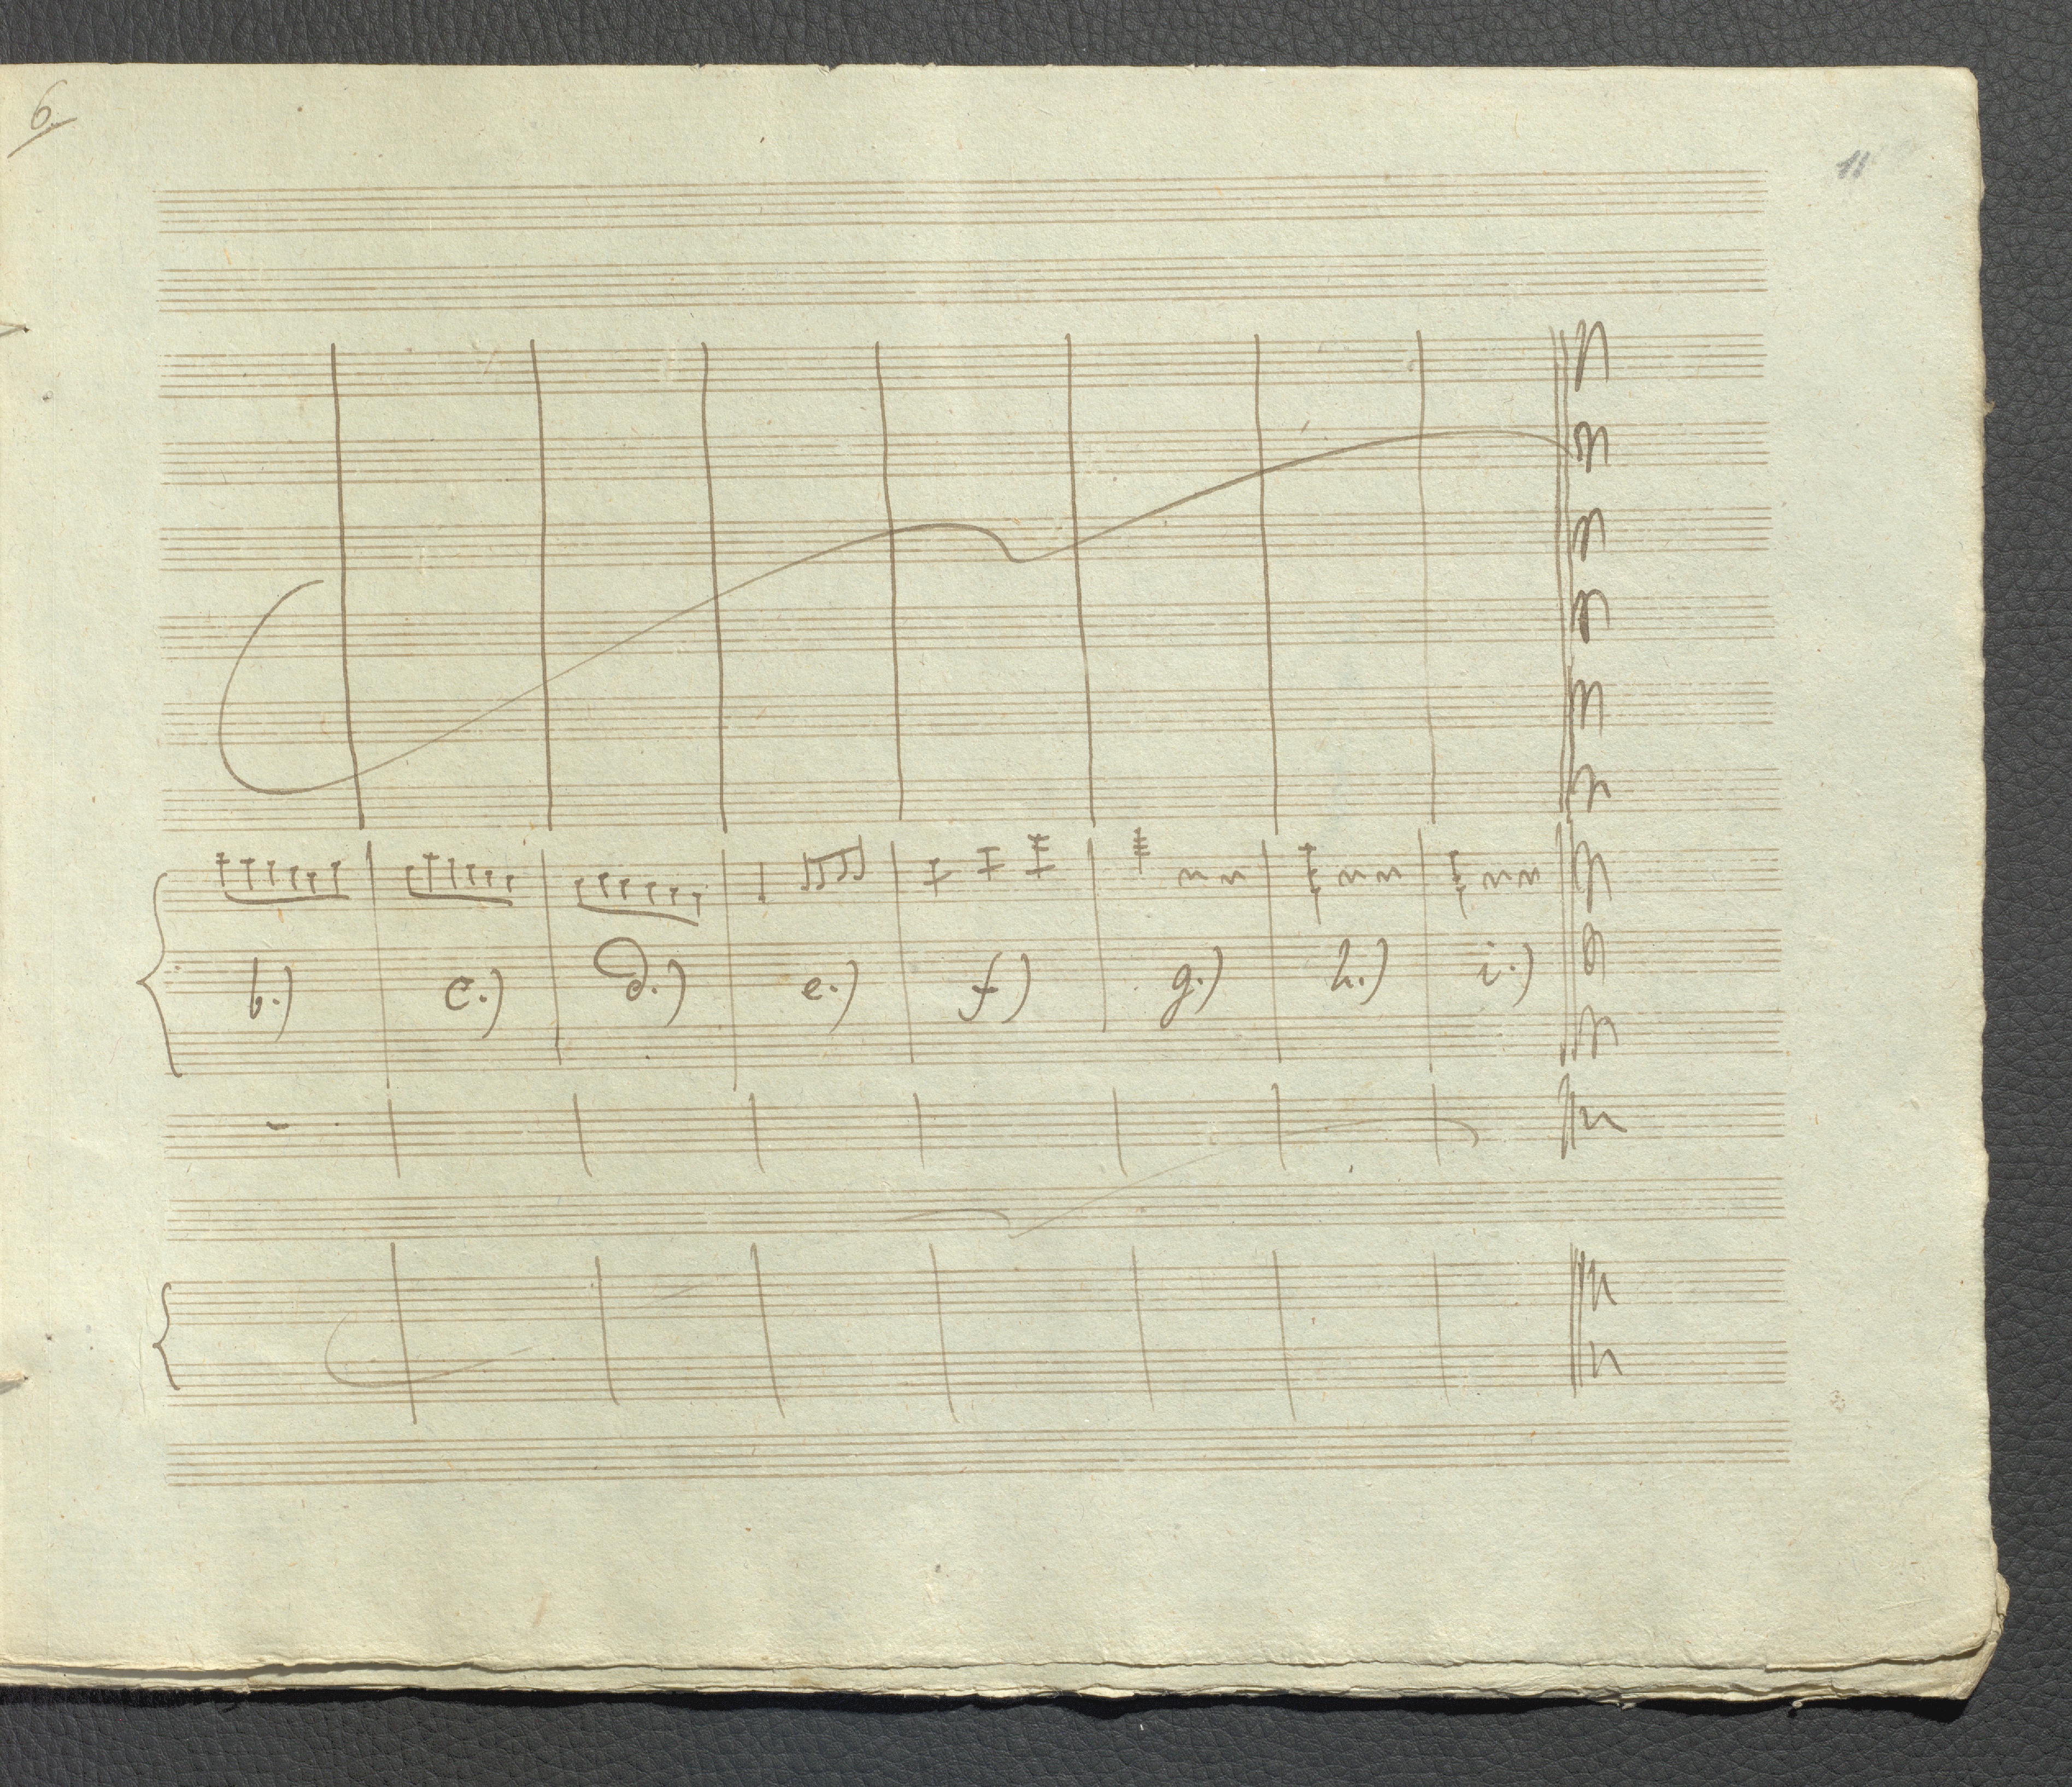 6.
11
b.) c.) d.) e.) f) g.) h.) i.)